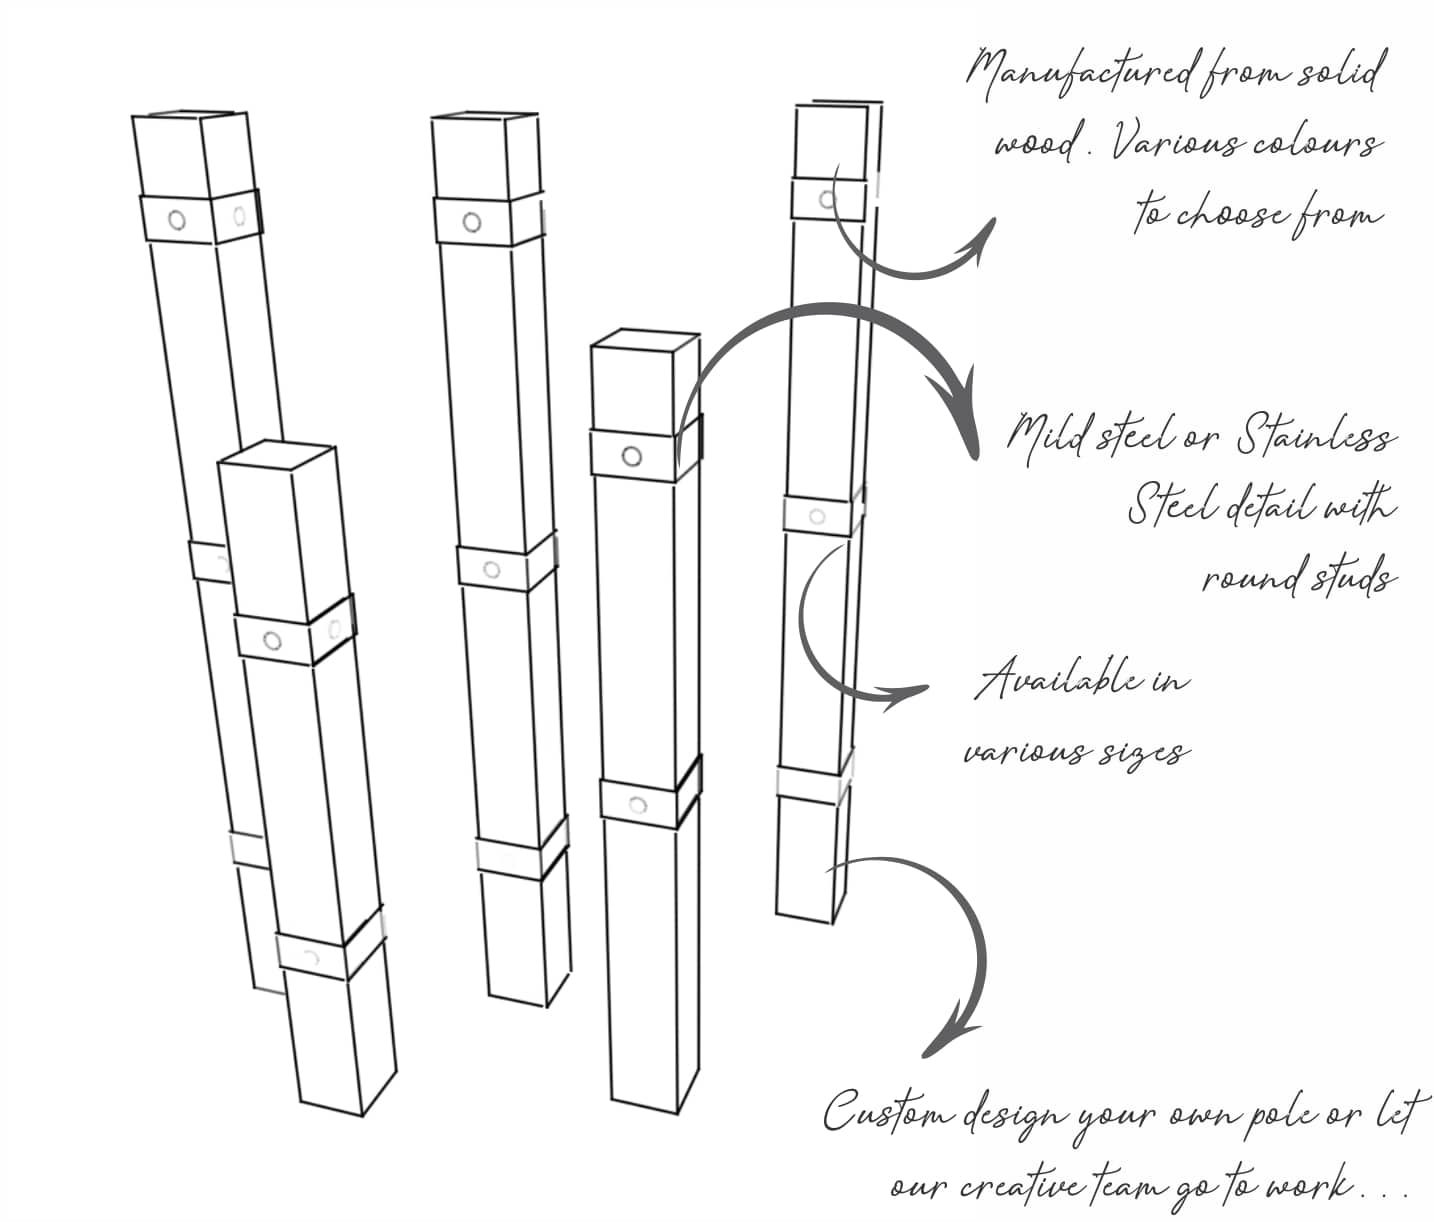 Manufactured from solid
wood. Various colours
to choose from
Mild steel or Stainless
Steel detail with
round studs
Available in
various sizes
Custom design your own pole or let
our creative team go to work...